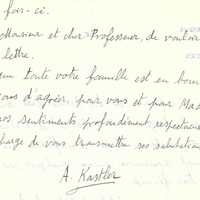 fois-ci.
Monsieur et cher Professeur, de vouloir
lettre.
que toute votre famille est en bon
ons d'agréer, pour vous et pour Mad
nos sentiments profondément respectueu
charge de vous transmettre ses salutation
A. Kastler